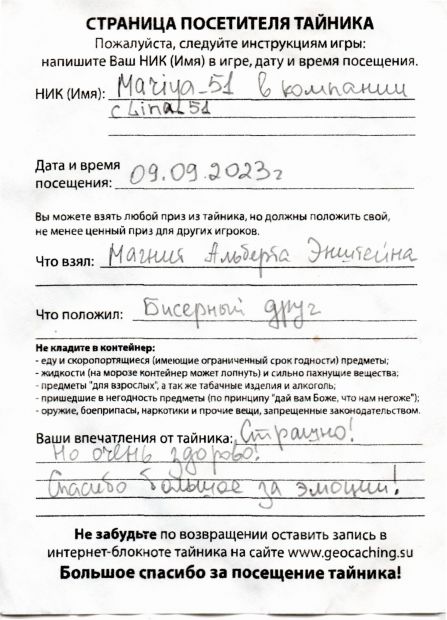 СТРАНИЦА ПОСЕТИТЕЛЯ ТАЙНИКА
Пожалуйста, следуйте инструкциям игры:
напишите Ваш НИК (Имя) в игре, дату и время посещения.
НИК (Имя): Mariya_51 в компании
с Lina_51
Дата и время
посещения: 09.09.2023г
Вы можете взять любой приз из тайника, но должны положить свой,
не менее ценный приз для других игроков.
Что взял: Магнит Альберта Энштейна
Что положил: Бисерный друг
Не кладите в контейнер:
- еду и скоропортящиеся (имеющие ограниченный срок годности) предметы;
- жидкости (на морозе контейнер может лопнуть) и сильно пахнущие вещества;
- предметы "для взрослых", а так же табачные изделия и алкоголь;
- пришедшие в негодность предметы (по принципу "дай вам Боже, что нам негоже");
- оружие, боеприпасы, наркотики и прочие вещи, запрещенные законодательством.
Ваши впечатления от тайника: Страшно!
Но очень здорово!
Спасибо большое за эмоции!
Не забудьте по возвращении оставить запись в
интернет-блокноте тайника на сайте www.geocaching.su
Большое спасибо за посещение тайника!